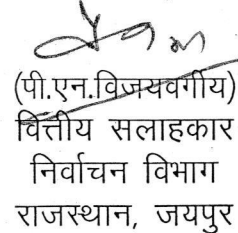 (पी.एन.विजयवर्गीय)
वित्तीय सलाहकार
निर्वाचन विभाग
राजस्थान, जयपुर